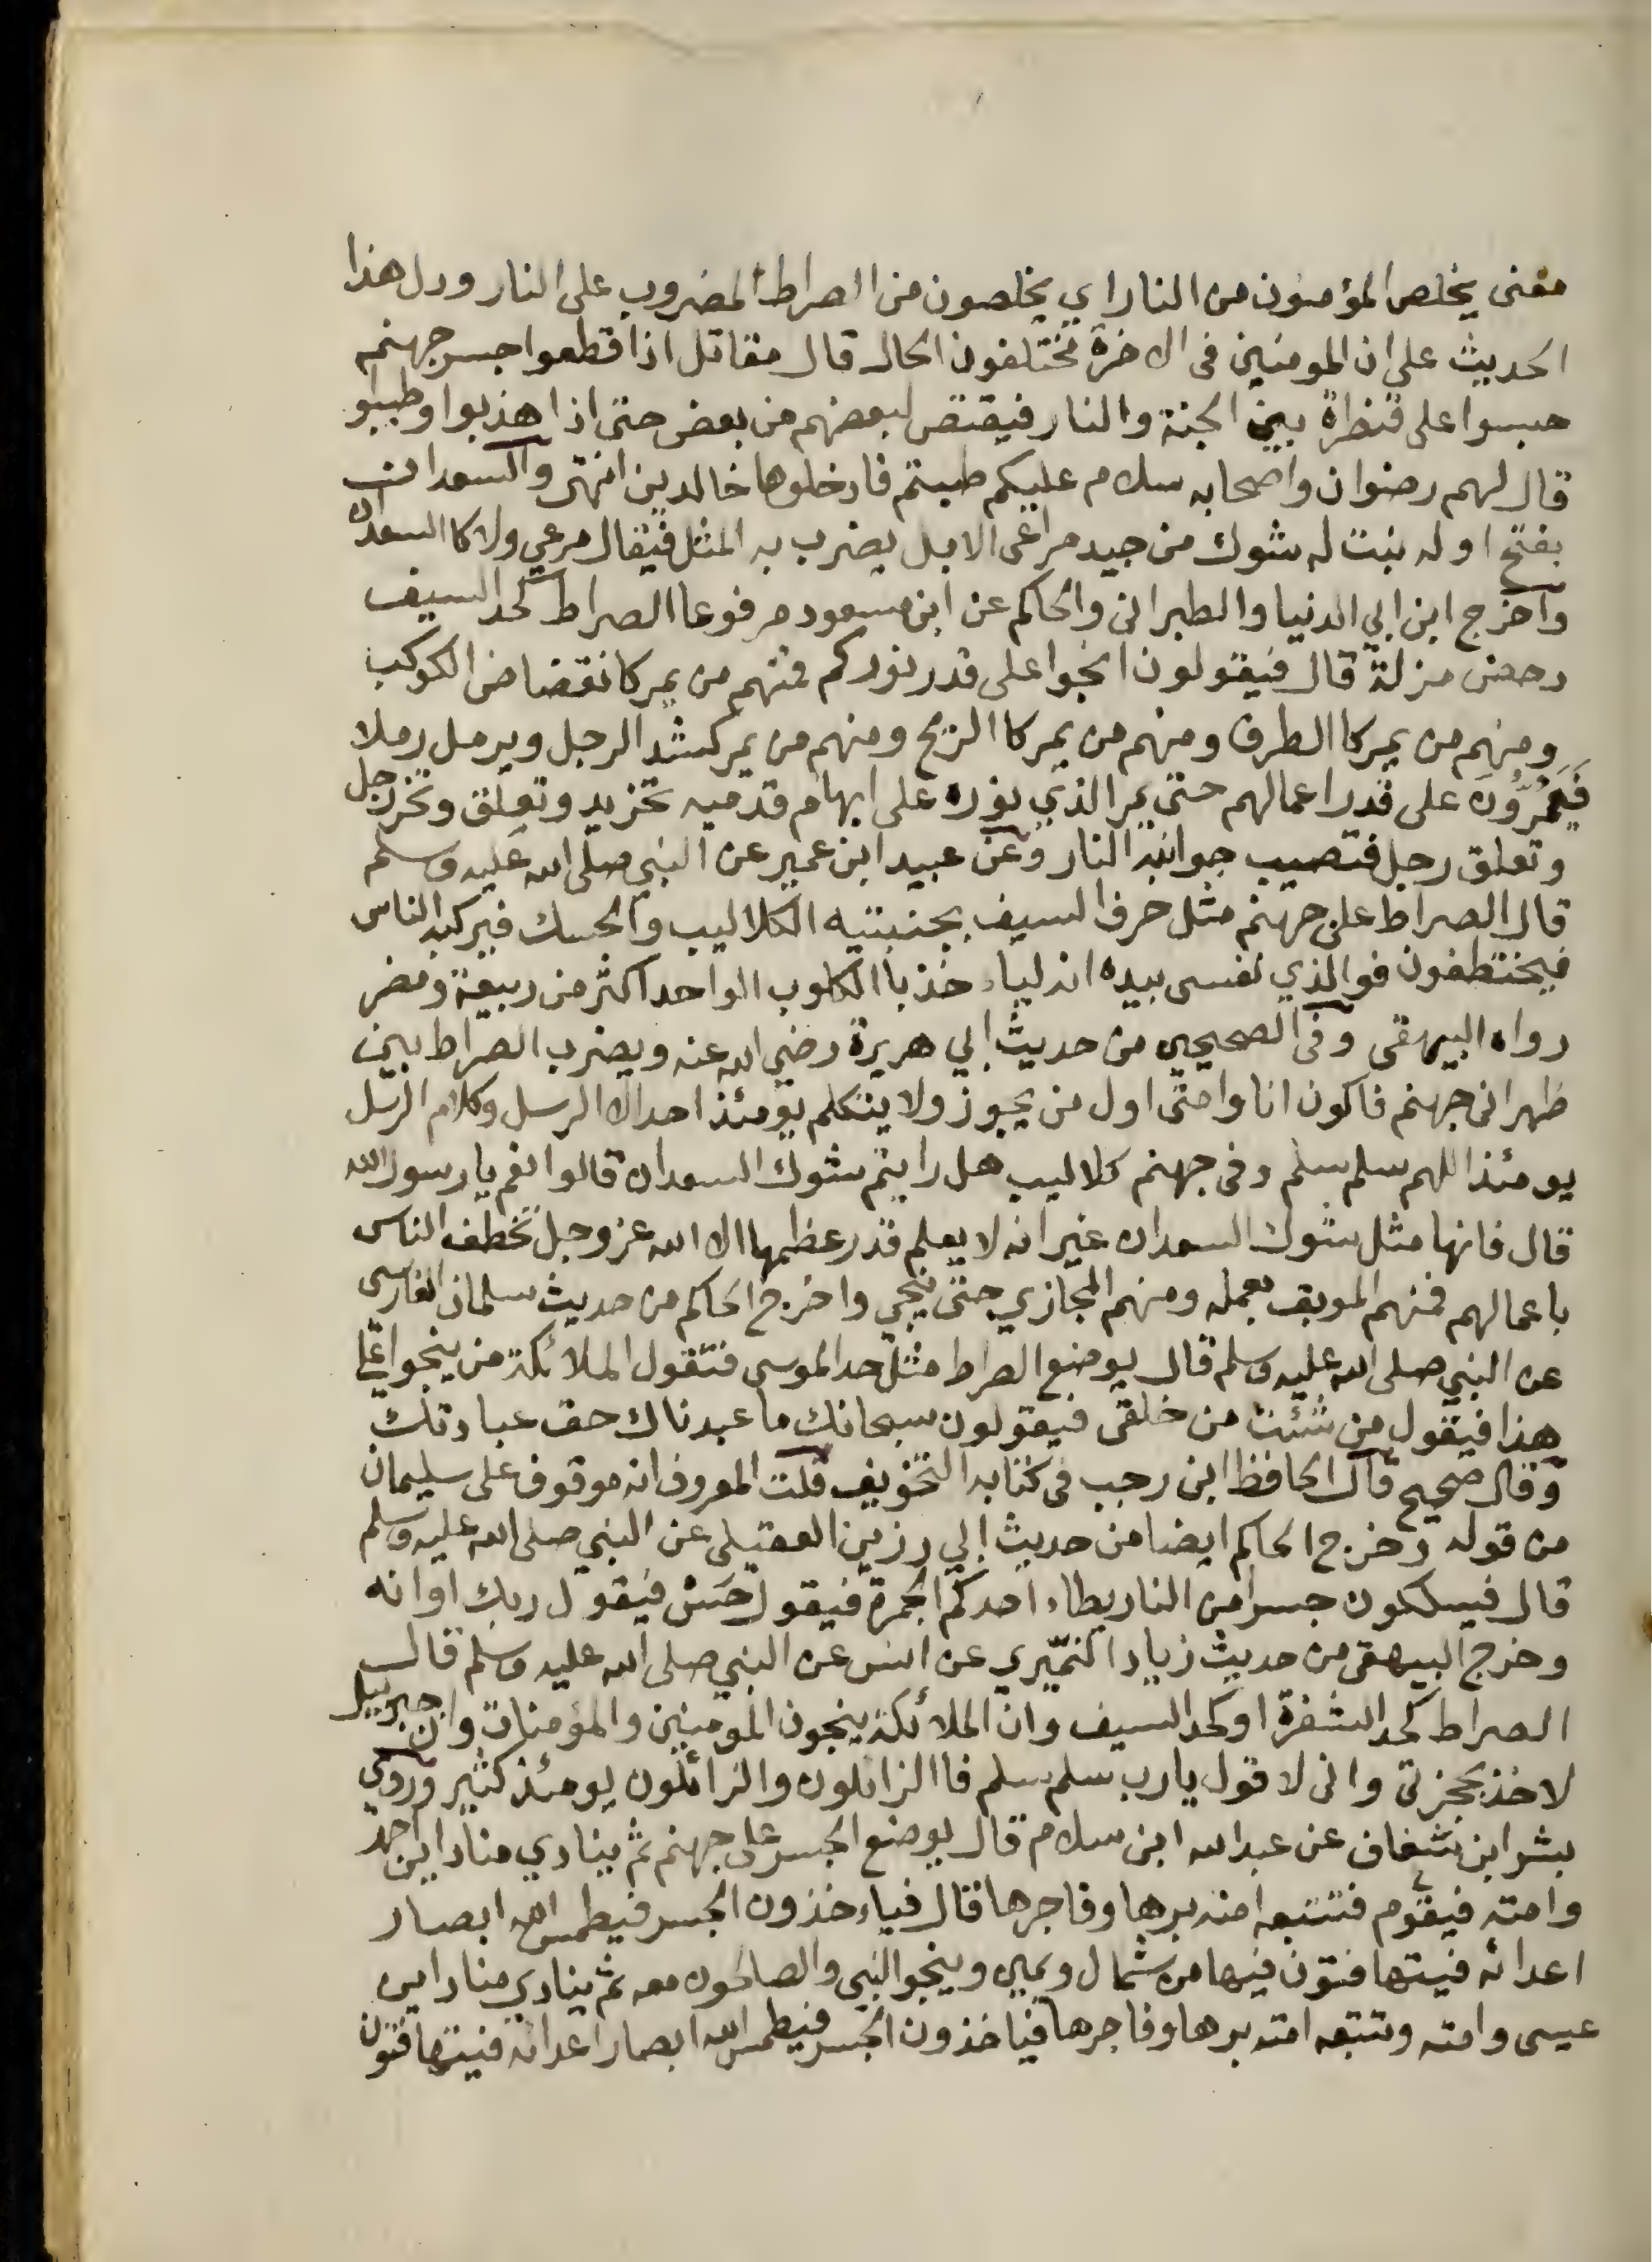 معنى يخلص المؤمنون من النار اي يخلصون من الصراط المضروب على النار ودل هذا
الحديث على ان المومنين فى الاخرة مختلفون الحال قال مقاتل اذا قطعوا جسر جهنم
حبسوا على قنطرة بين الجنة والنار فيقتص لبعضهم من بعض حتى اذا هذبوا وطيبوا
قال لهم رضوان واصحابه سلام عليكم طبتم فادخلوها خالدين انتهى والسعدان
بفتح اوله نبت له شوك من جيد مراعى الابل يضرب به المثل فيقال مرعي ولا كا السعدان
واخرج ابن ابي الدنيا والطبرانى والحاكم عن ابن مسعود مرفوعا الصراط كحد السيف
دحض مزلة قال فيقولون انجوا على قدر نوركم فمنهم من يمر كانقضاض الكوكب
ومنهم من يمر كا الطرف ومنهم من يمر كا الريح ومنهم من يمر كشد الرجل ويرمل رملا
فَيَمُرُّونَ على قدر اعمالهم حتى يمر الذي نوره على ابهام قدميه تخر يد وتعلق وتخر رجل
وتعلق رجل فتصيب جوانبه النار وعن عبيد ابن عمير عن النبي صلى الله عليه وسلم
قال الصراط على جهنم مثل حرف السيف بجنبتيه الكلاليب والحسك فيركبه الناس
فيختطفون فوالذي نفسى بيده انه لياءخذ با الكلوب الواحد اكثر من ربيعة ومضر
رواه البيهقى وفى الصحيحين من حديث ابي هريرة رضي الله عنه ويضرب الصراط بين
ظهرانى جهنم فاكون انا وامتى اول من يجوز ولا يتكلم يومئذ احد الا الرسل وكلام الرسل
يومئذ اللهم سلم سلم وفى جهنم كلاليب هل رايتم شوك السعدان قالوا نعم يا رسول الله
قال فانها مثل شوك السعدان غير انه لا يعلم قدر عظمها الا الله عز وجل تخطف الناس
باعمالهم فمنهم الموبق بعمله ومنهم المجازي حتى ينجي واخرج الحاكم من حديث سلمان الفارسى
عن النبي صلى الله عليه وسلم قال يوضع الصراط مثل حد الموسى فتقول الملائكة من ينجوا على
هذا فيقول من شئت من خلقى فيقولون سبحانك ما عبدناك حق عبادتك
وقال صحيح قال الحافظ ابن رجب فى كتابه التخويف قلت المعروف انه موقوف على سليمان
من قوله وخرج الحاكم ايضا من حديث ابي رزين العقيلى عن النبي صلى الله عليه وسلم
قال فيسلكون جسرا من النار يطاء احدكم الجمرة فيقول حَسْ فيقول ربك اوانه
وخرج البيهقى من حديث زياد النمّيري عن انس عن النبي صلى الله عليه وسلم قال
الصراط كحد الشفرة او كحد السيف وان الملائكة ينجون المومنين والمؤمنات وان جبرييل
لاخذ بحجزتى وانى لاقول يا رب سلم سلم فا الزالون والزائلون يومئذ كثير وروي
بشر ابن شغاف عن عبد الله ابن سلام قال يوضع الجسر على جهنم ثم ينادي مناد اين احمد
وامته فيقوم فتتبعه امته برها وفاجرها قال فياءخذون الجسر فيطمس الله ابصار
اعدائه فيتهافتون فيها من شمال ويمين وينجو النبي والصالحون معه ثم ينادي مناد اين
عيسى وامته وتتبعه امته برها وفاجرها فياخذون الجسر فيطمس الله ابصار اعدائه فيتهافتون